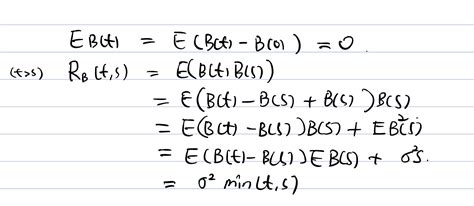 E B(t) = E(B(t) - B(0)) = 0.
(t>s) R_B(t,s) = E(B(t)B(s))
= E(B(t) - B(s) + B(s))B(s)
= E(B(t) - B(s))B(s) + EB²(s)
= E(B(t) - B(s))EB(s) + σ²s.
= σ² min(t,s)